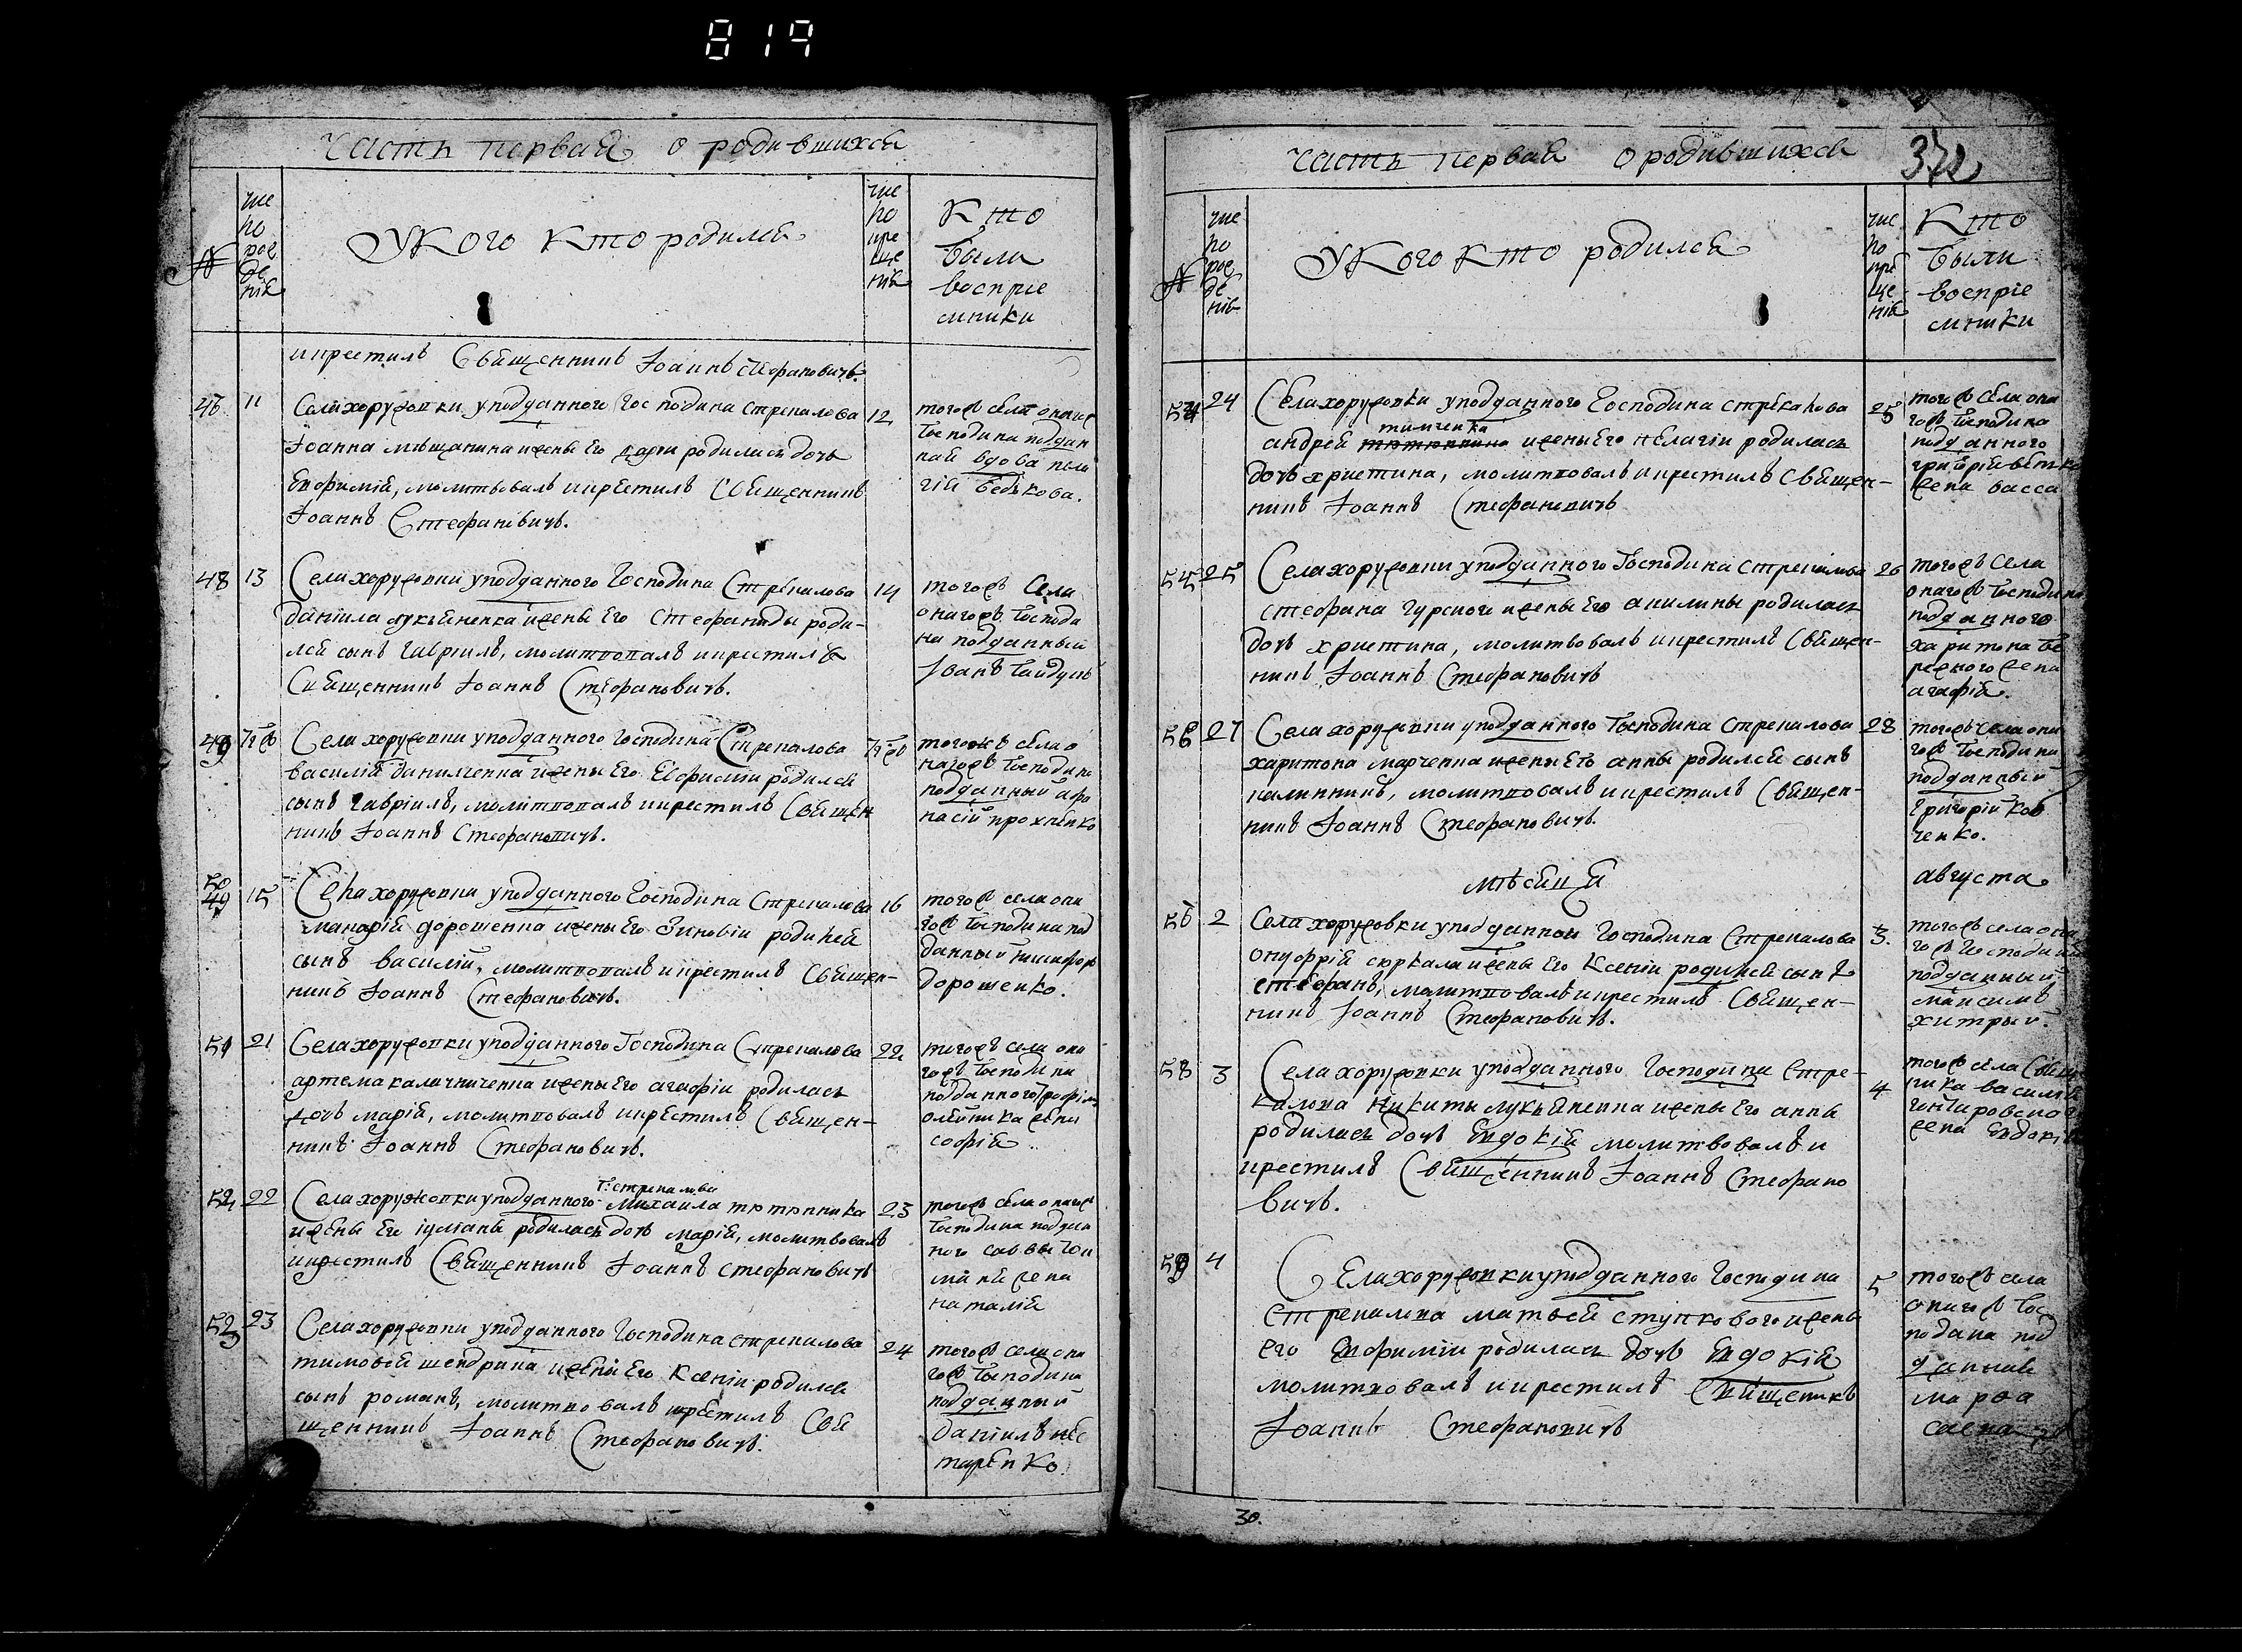 819
Часть первая о родившихся
№
чис
ло
рож
де
нія
У Кого Кто родился
чис
ло
кре
ще
нія
Кто
были
воспріе
мники
и крестилъ Священникъ Іоаннъ Стефановичъ.
11
Села хоружовки у подданного Господина Стрекалова
12
Іоанна мѣщанина и жены Его родилась дочь
Евфимія, молитвовалъ и крестилъ Священникъ
Іоаннъ Стефановичъ.
тогожъ села
Господина поддан
ная вдова пела
гія бедькова.
48
13
Села хоружовки у подданного Господина Стрекалова
14
даніила лукьяненка и жены Его Стефаниды роди-
лся сынъ Гавріилъ, молитвовалъ и крестилъ
Священникъ Іоаннъ Стефановичъ.
тогожъ Села
онагожъ Господи
на подданный
Іоанъ Гайдукъ
49
Села хоружовки у подданного Господина Стрекалова
василія данилченка и жены Его Евфиміи родился
сынъ Гавріилъ, молитвовалъ и крестилъ Священ
никъ Іоаннъ Стефановичъ.
тогожъ села о
нагожъ Господина
подданный афа
насій прохненко
50
49
15
Села хоружовки у подданного Господина Стрекалова
16
макарія дорошенка и жены Его Зиновіи родился
сынъ василій, молитвовалъ и крестилъ Священ-
никъ Іоаннъ Стефановичъ.
тогожъ села она
гожъ Господина под
данный никифоръ
дорошенко.
51
21
Села хоружовки у подданного Господина Стрекалова
22
артема калачниченка и жены Его агафіи родилась
дочь марія, молитвовалъ и крестилъ Священ-
никъ Іоаннъ Стефановичъ.
тогожъ села она
гожъ Господина
подданного трофима
олейника жена
софія.
52
22
Г: стрекалова
Села хоружовки у подданного Михаила тютюнника
23
и жены Его іуліаны родилась дочь марія, молитвовалъ
и крестилъ Священникъ Іоаннъ стефановичъ
тогожъ села онагожъ
Господина поддан
ного саввы
жена
наталія
53
23
Села хоружовки у подданного Господина стрекалова
24
тимофея шендрика и жены Его Ксеніи родился
сынъ романъ, молитвовалъ и крестилъ Свя
щенникъ Іоаннъ Стефановичъ.
тогожъ села она
гожъ Господина
подданный
даніилъ нес
теренко.
Часть первая о родившихся
372
№
чис
ло
рож
де
нія
У Кого Кто родился
чис
ло
кре
ще
нія
Кто
были
воспріе
мники
54
24
Села хоружовки у подданного Господина стрекалова
25
тимченка
андрея и жены Его пелагіи родилась
дочь христина, молитвовалъ и крестилъ Священ-
никъ Іоаннъ Стефановичъ
тогожъ села она
гожъ Господина
подданного
григорія
жена васса
55
25
Села хоружовки у подданного Господина стрекалова
26
стефана гурского и жены Его акилины родилась
дочь христина, молитвовалъ и крестилъ Священ-
никъ Іоаннъ Стефановичъ
тогожъ Села
онагожъ Господина
подданного
харитона бе
режного жена
агафія.
56
27
Села хоружовки у подданного Господина стрекалова
28
харитона марченка и жены Его анны родился сынъ
калинникъ, молитвовалъ и крестилъ Священ-
никъ Іоаннъ Стефановичъ.
тогожъ села она
гожъ Господина
подданный
Григорій Ков
ченко.
мѣсяца
августа
2
Села хоружовки у подданного Господина Стрекалова
3.
онуфрія сюркала и жены Его Ксеніи родился сынъ
стефанъ, молитвовалъ и крестилъ Священ-
никъ Іоаннъ Стефановичъ.
тогожъ села она
гожъ Господина
подданный
максимъ
хитрый.
58
3
Села хоружовки у подданного Господина Стре-
4
калова Никиты лукьяненка и жены Его анны
родилась дочь Евдокія молитвовалъ и
крестилъ Священникъ Іоаннъ Стефано
вичъ.
тогожъ села
василія
жена Евдокія
59
4
Села хоружовки у подданного Господина
5
Стрекалова матвея ступкового и жены
его Евфиміи родилась дочь Евдокія
молитвовалъ и крестилъ Священикъ
Іоаннъ Стефановичъ
тогожъ села
онагожъ Гос
подина под
данная
марфа
30.